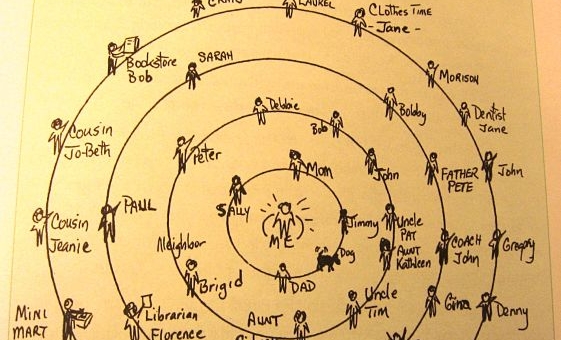 CRAIG
LAUREL
CLOTHES TIME
- Jane -
BOOKSTORE
Bob
SARAH
MORISON
Debbie
Bobby
Dentist
Jane
Cousin
Jo-Beth
Bob
Peter
Mom
John
FATHER
PETE
John
SALLY
PAUL
Jimmy
Uncle
PAT
Cousin
Jeanie
ME
Neighbor
Brigid
Dog
AUNT
Kathleen
COACH
John
Gregory
DAD
Uncle
Tim
Gina
Denny
MINI
MART
Librarian
Florence
AUNT